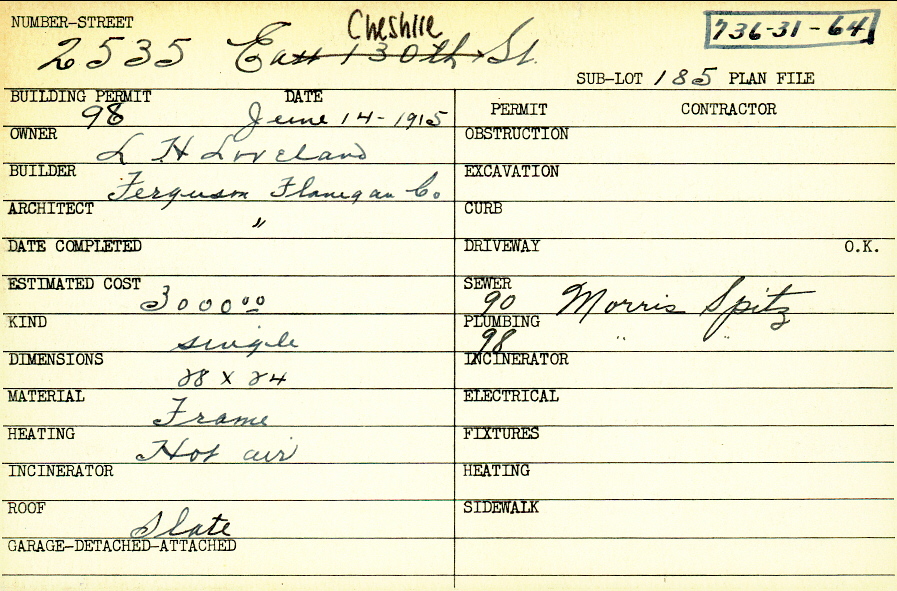 NUMBER-STREET
Cheshire
736-31-64
2535 East 130th St.
SUB-LOT 185 PLAN FILE
BUILDING PERMIT DATE
98 June 14-1915
OWNER
L H Loveland
BUILDER
Ferguson Flanegan Co
ARCHITECT
"
DATE COMPLETED
ESTIMATED COST
3000 00
KIND
single
DIMENSIONS
28 x 24
MATERIAL
Frame
HEATING
Hot air
INCINERATOR
ROOF
Slate
GARAGE-DETACHED-ATTACHED
PERMIT CONTRACTOR
OBSTRUCTION
EXCAVATION
CURB
DRIVEWAY O.K.
SEWER
90 Morris Spitz
PLUMBING
98 " "
INCINERATOR
ELECTRICAL
FIXTURES
HEATING
SIDEWALK